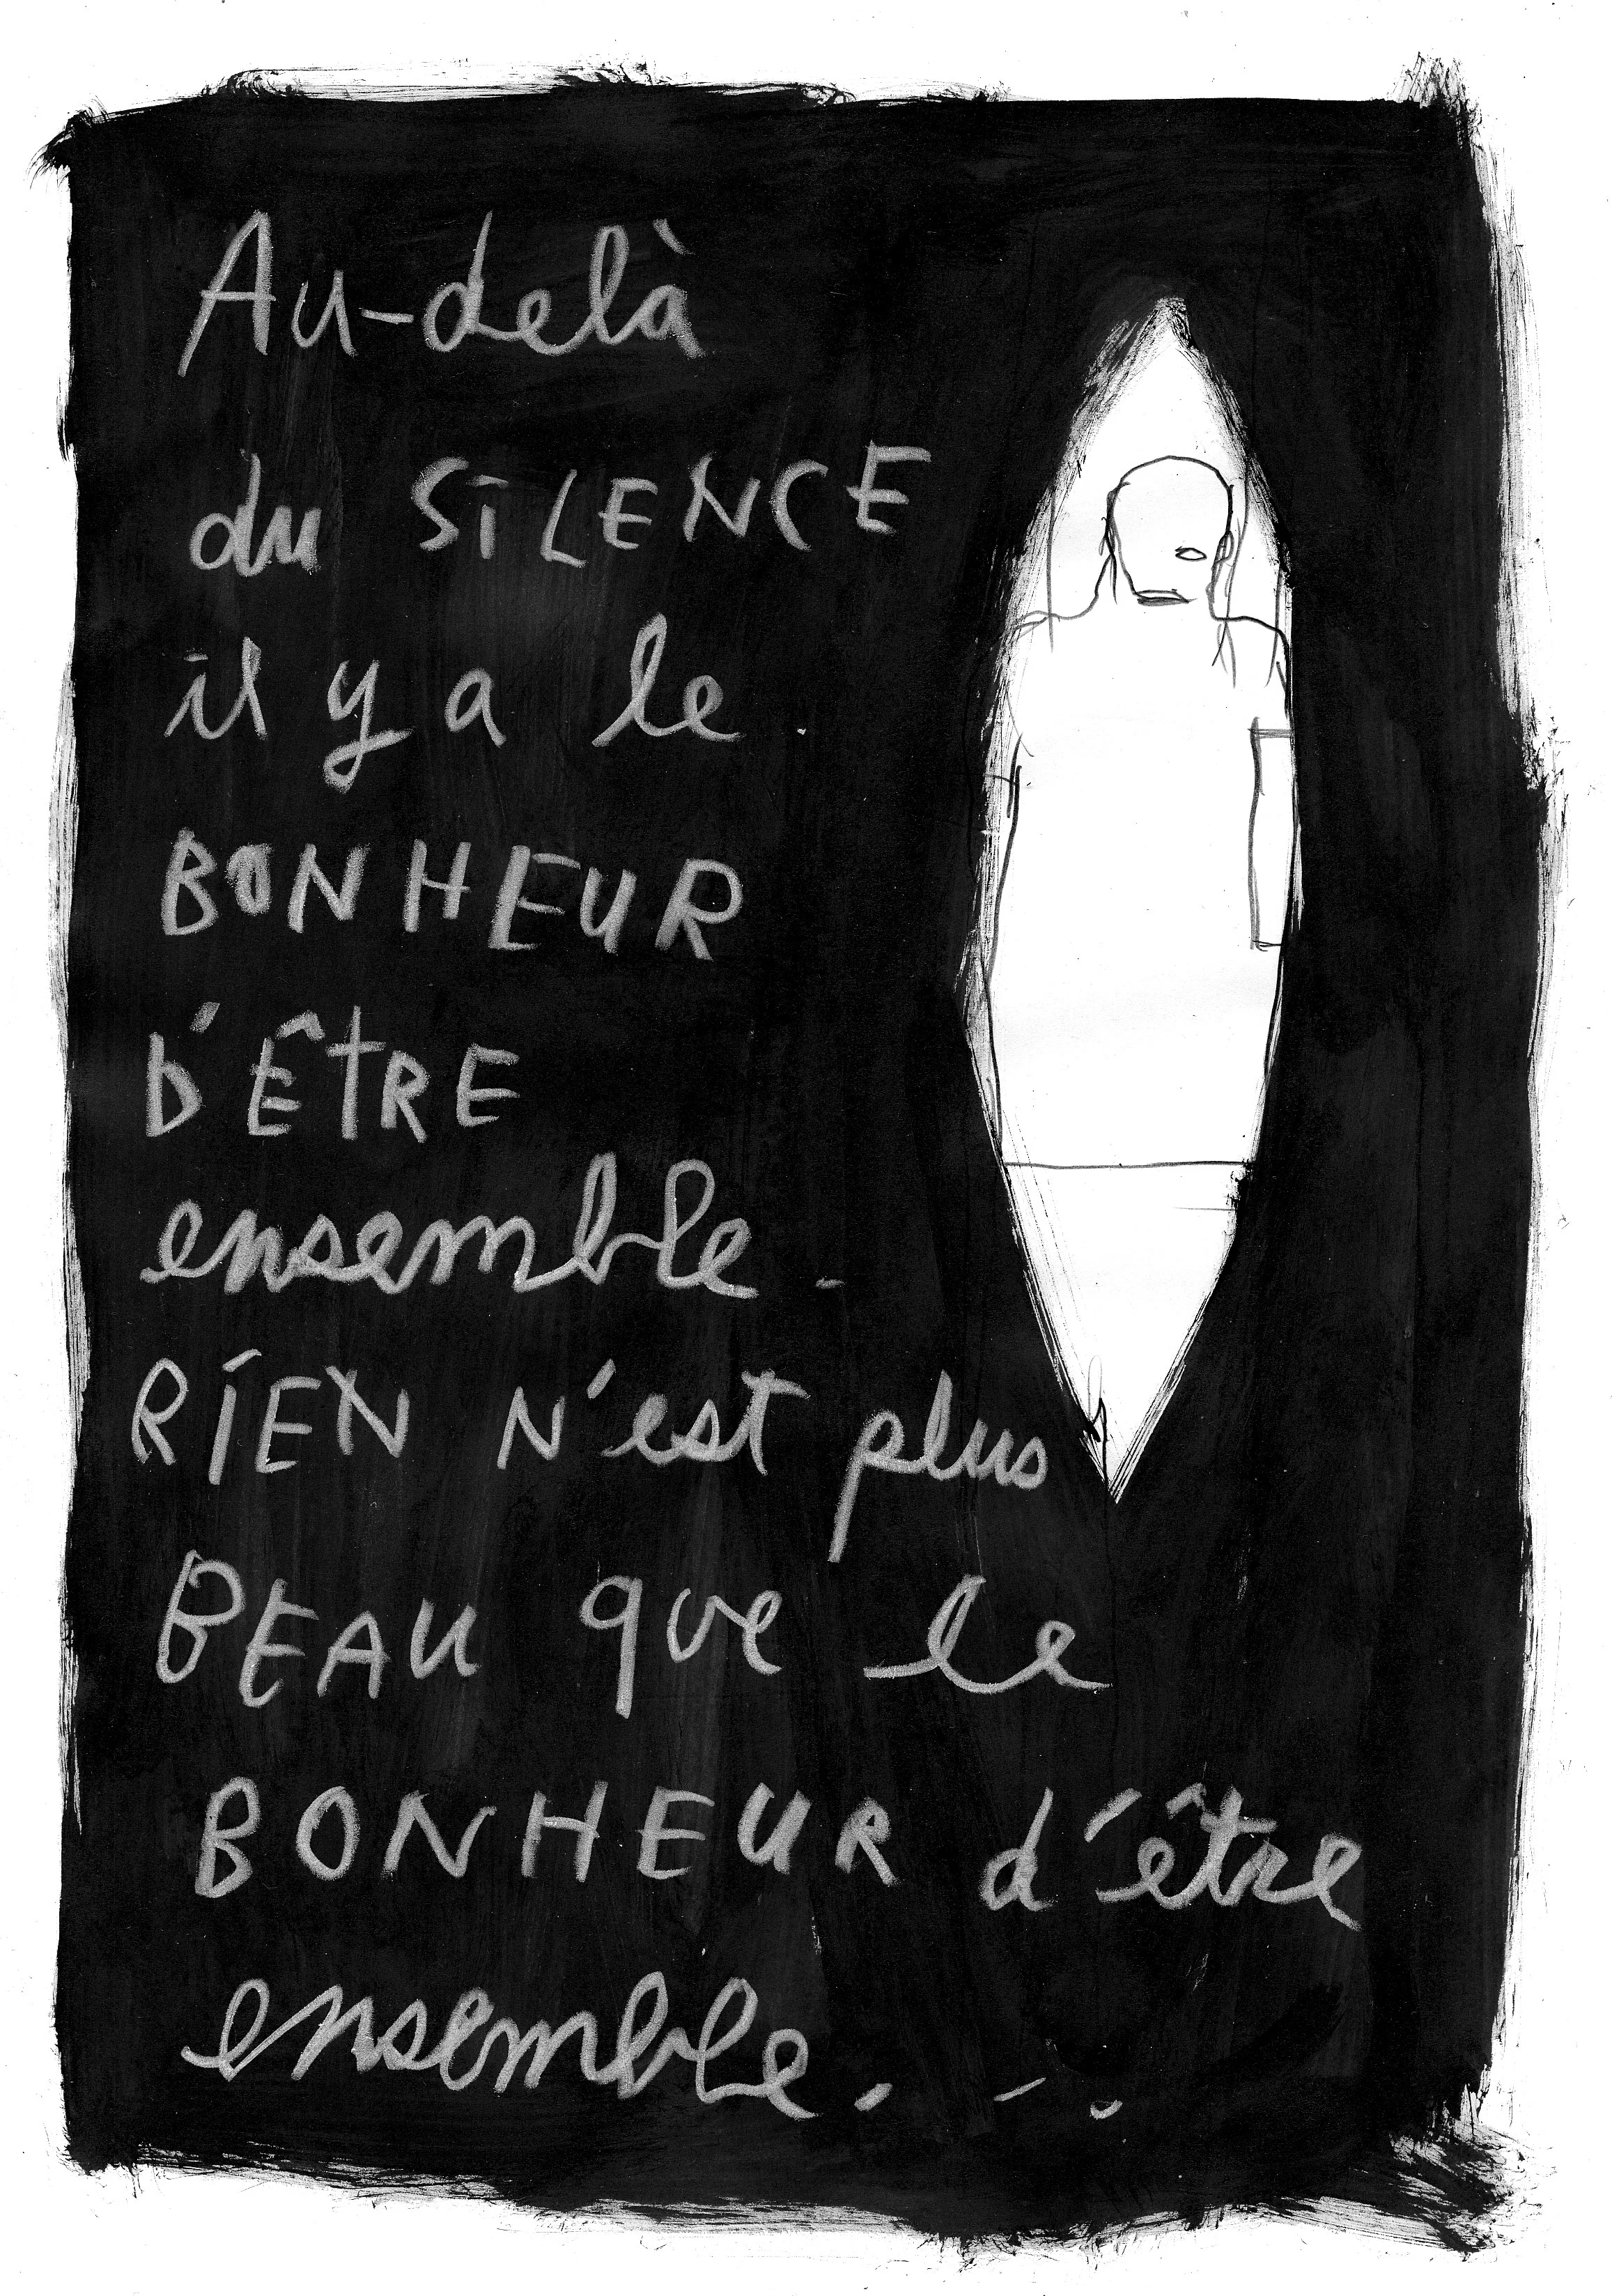 Au-delà
du SILENCE
il y a le
BONHEUR
D'ÊtRE
ensemble.
RIEN N'est plus
BEAU que le
BONHEUR d'être
ensemble...